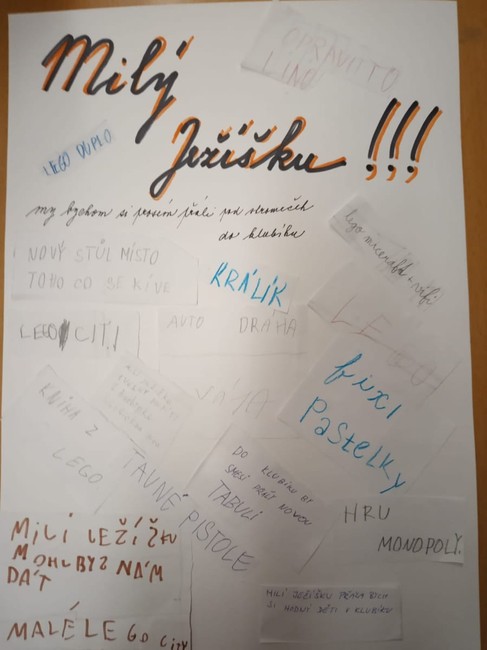 OPRAVIT TO
LINO
Milý
Ježíšku !!!
LEGO DUPLO
my bychom si prosím přáli pod stromeček
do klubíku
NOVÝ STŮL MÍSTO
TOHO CO SE KÍVE
KRÁLÍK
lego
LEGO CITI
AUTO DRÁHA
LEGO
fixi
Pastelky
VÁŇA
KNIHA Z
LEGO
TAVNÉ
PISTOLE
DO KLUBÍKU BY
SMELI PŘÁT NOVOU
TABULI
HRU
MONOPOLY.
MILÍ JEŽÍŠKU
MOHL BYS NÁM
DÁT
MALÉ LEGO CITY
MILÍ JEŽÍŠKU PŘÁLA BYCH
SI HODNÍ DĚTI V KLUBÍKU